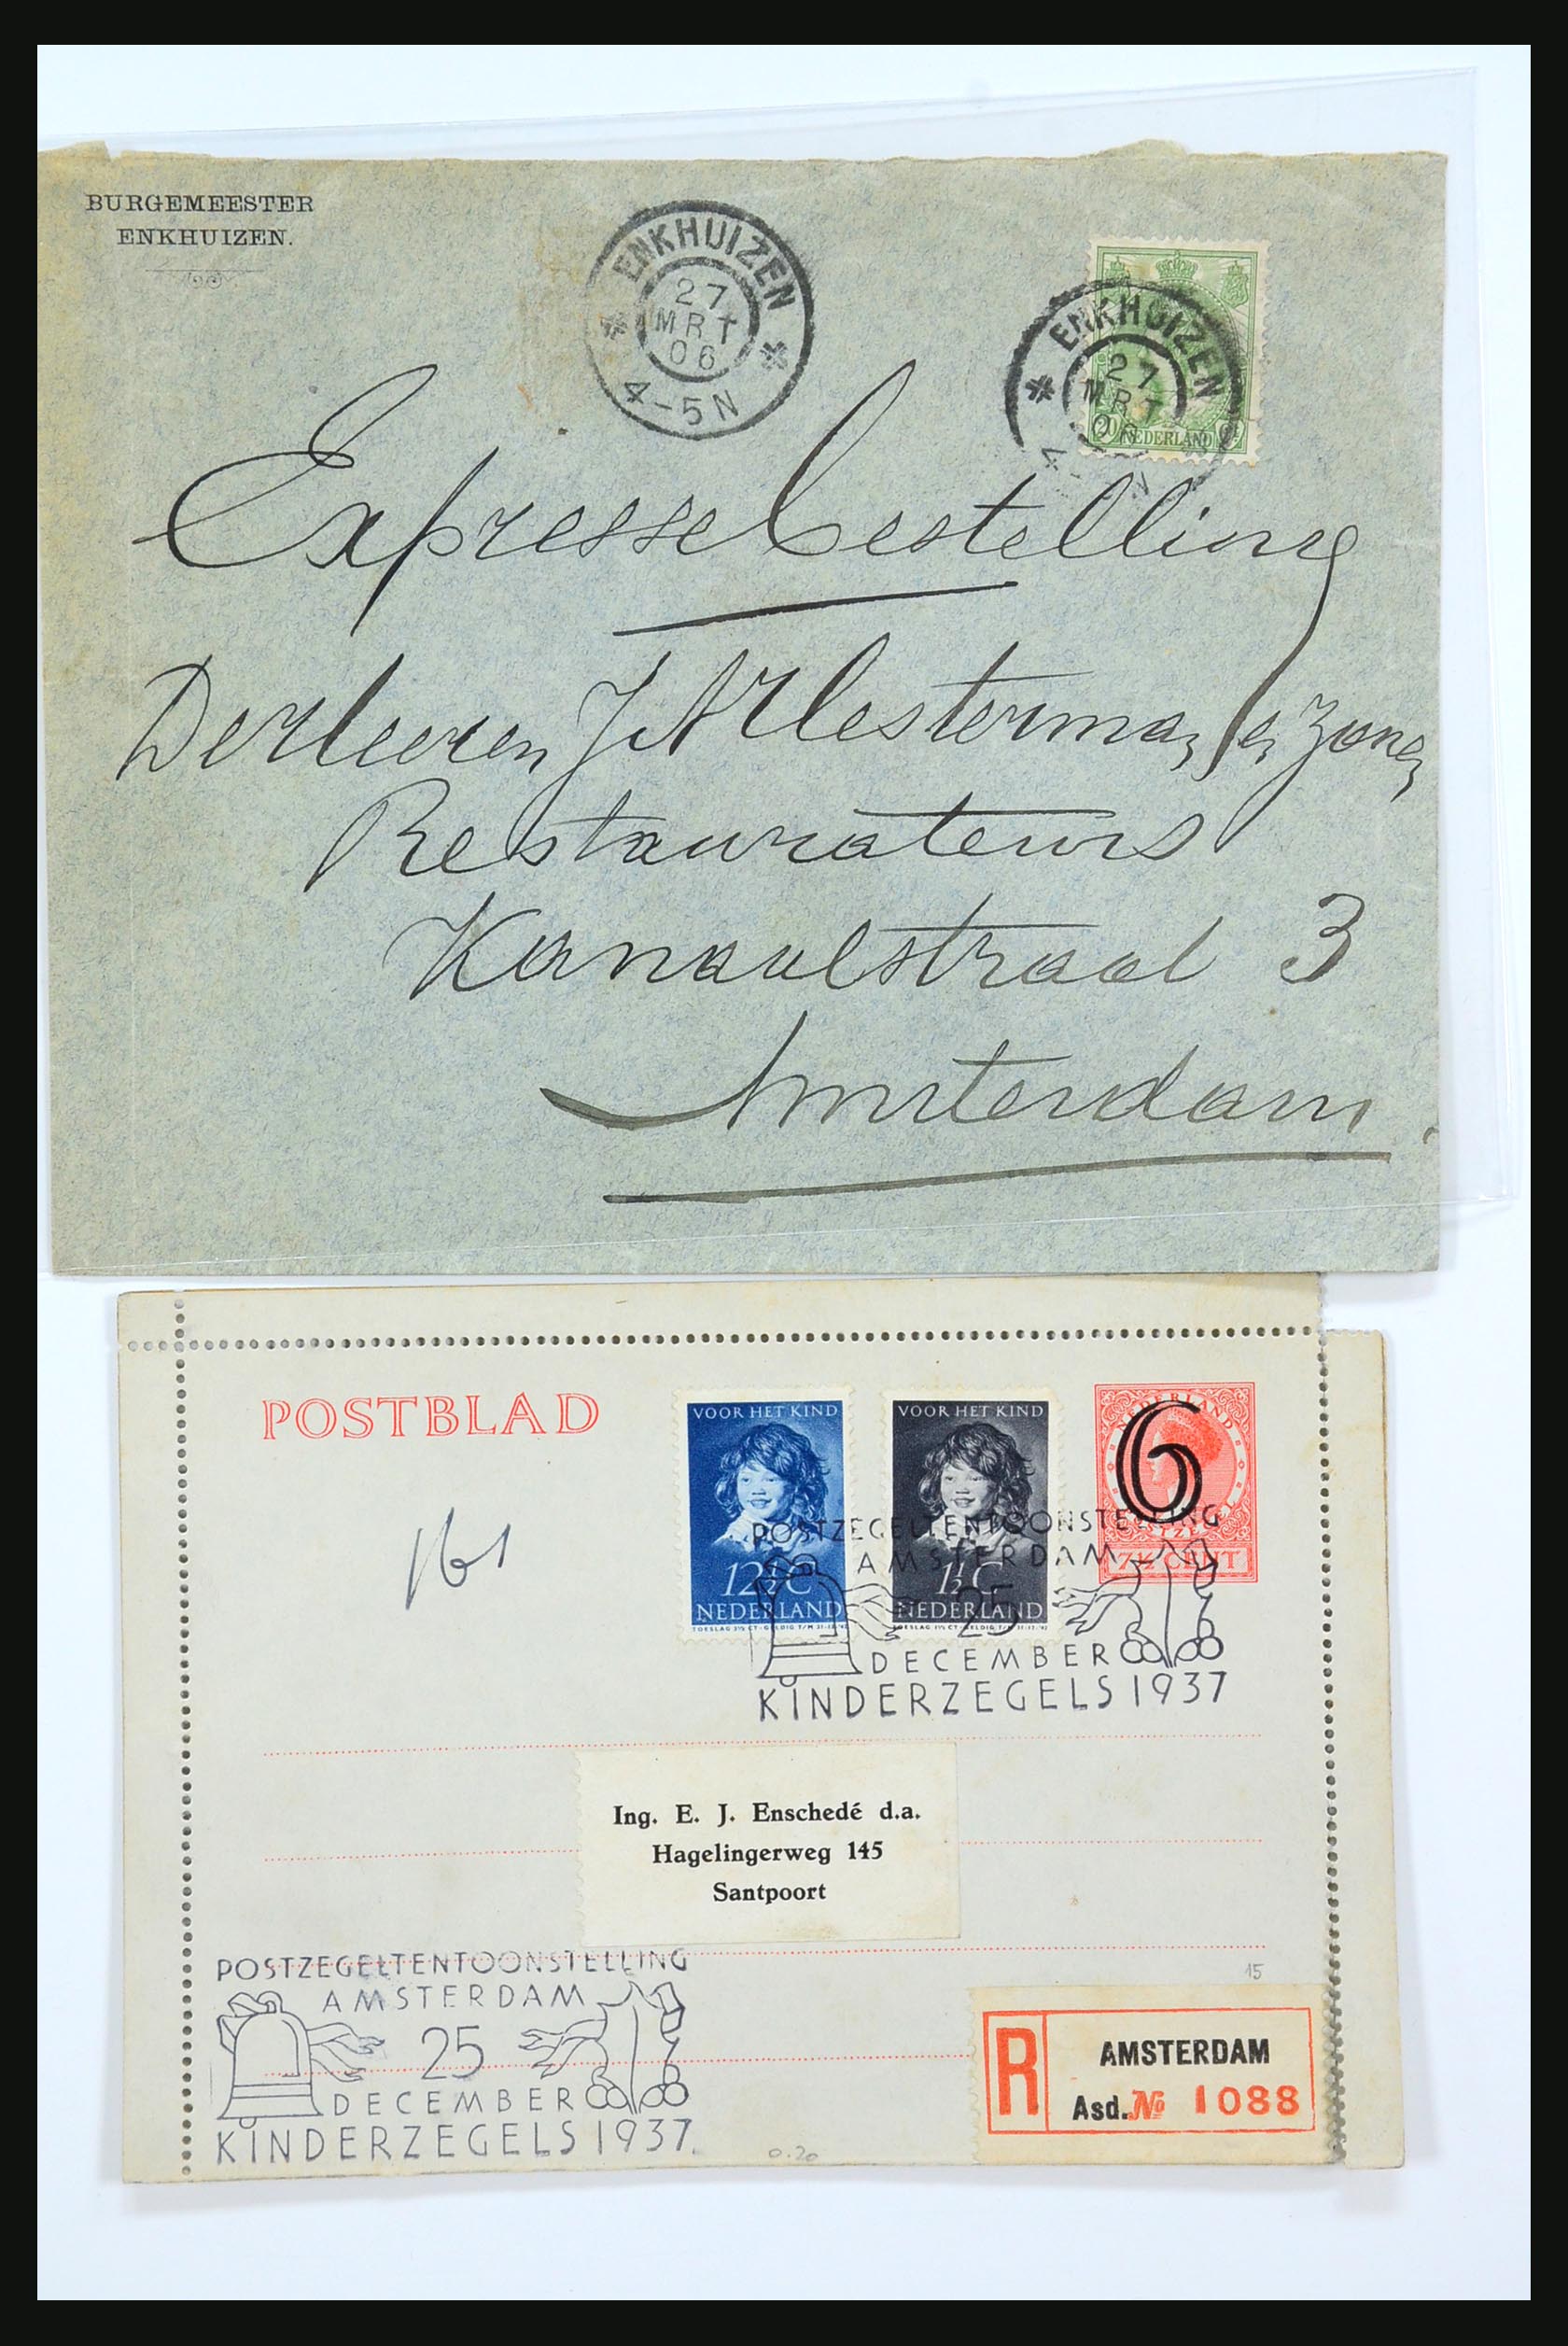 BURGEMEESTER
ENKHUIZEN.
ENKHUIZEN
27
MRT
06
4-5N
ENKHUIZEN
27
MRT
20 NEDERLAND
Expressebestelling
Den Heeren J A Westerman en Zonen
Restaurateurs
Kanaalstraat 3
Amsterdam.
POSTBLAD
VOOR HET KIND
12½ C
NEDERLAND
TOESLAG 3½ CT-GELDIG T/M 31-12-'42
VOOR HET KIND
1½ C
NEDERLAND
NEDERLAND
6
7½ CENT
POSTZEGELTENTOONSTELLING
AMSTERDAM
25
DECEMBER
KINDERZEGELS 1937
Ing. E. J. Enschedé d.a.
Hagelingerweg 145
Santpoort
POSTZEGELTENTOONSTELLING
AMSTERDAM
25
DECEMBER
KINDERZEGELS 1937.
15
R
AMSTERDAM
Asd. No 1088
0.20